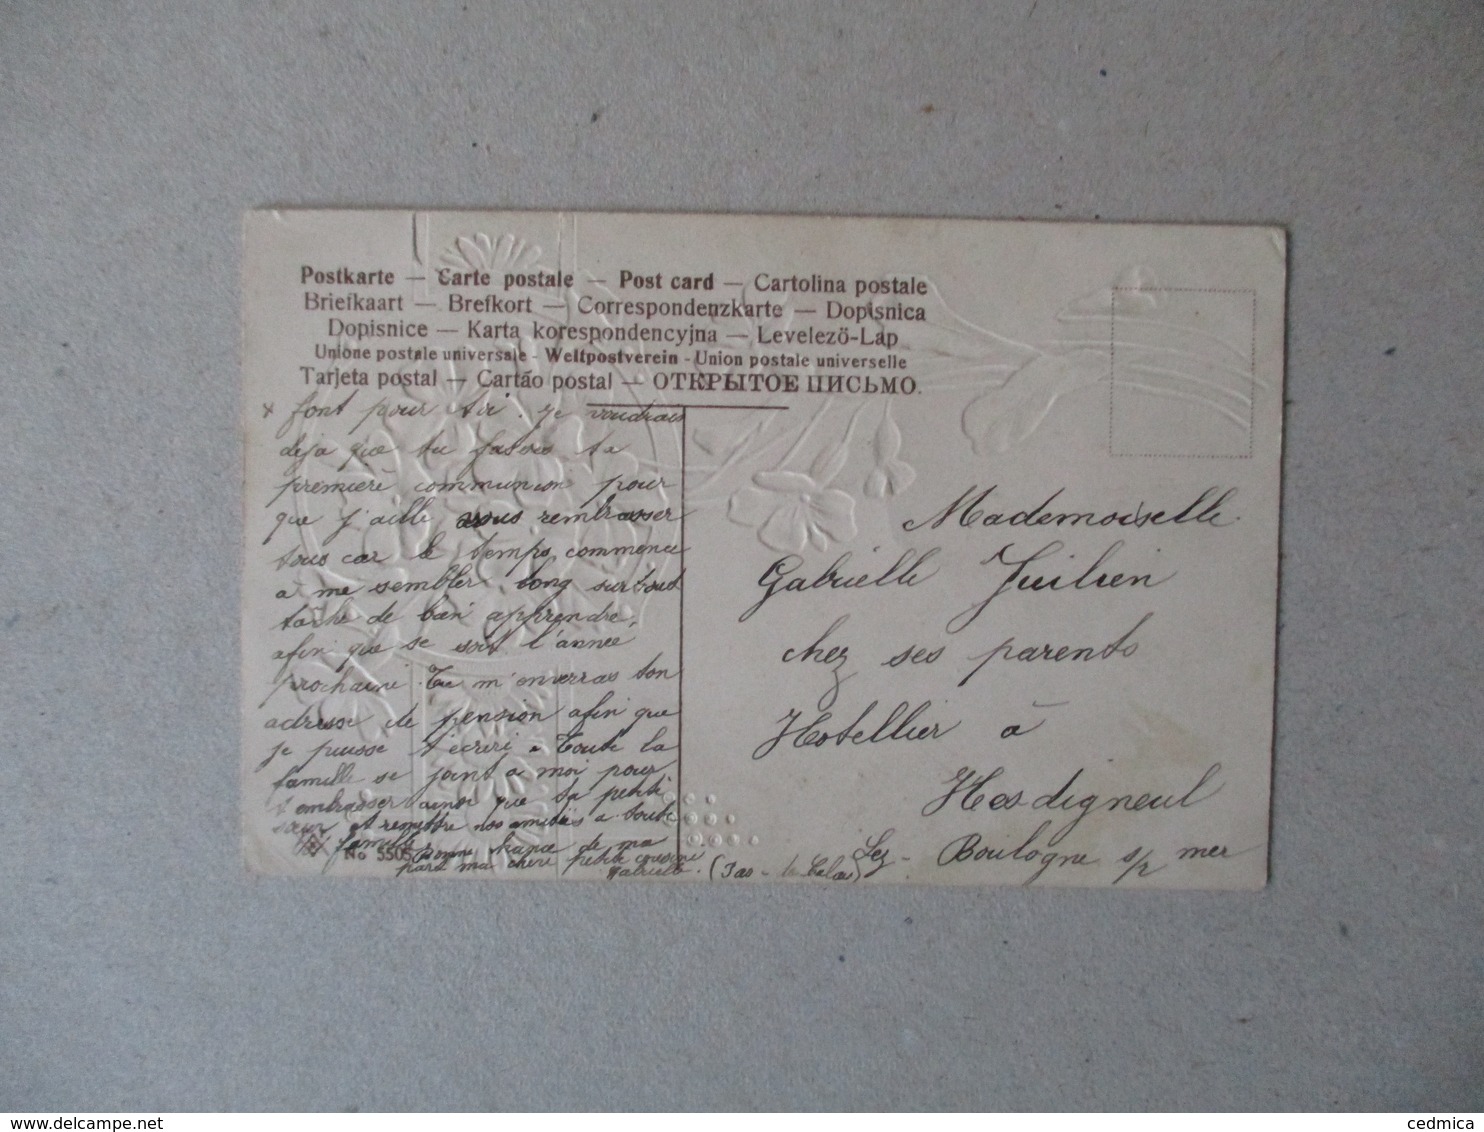 Postkarte — Carte postale — Post card — Cartolina postale
Briefkaart — Brefkort — Correspondenzkarte — Dopisnica
Dopisnice — Karta korespondencyjna — Levelező-Lap
Unione postale universale - Weltpostverein - Union postale universelle
Tarjeta postal — Cartão postal — ОТКРЫТОЕ ПИСЬМО.
x font pour toi. je voudrais
deja que tu fasses ta
première communion pour
que j'aille vous rembrasser
tous car le temps commence
à me sembler long surtout
tâche de bien apprendre,
afin que se soit l'année
prochaine. Tu m'enverras ton
adresse de pension afin que
je puisse t'écrire. Toute la
famille se joint à moi pour
t'embrasser ainsi que ta petite
sœur et remettre nos amitiés a toute
la famille. Bonne chance de ma
No 5505
part ma chère petite cousine
Gabrielle.
Mademoiselle
Gabrielle Juilien
chez ses parents
Hotellier à
Hesdigneul
Lez - Boulogne s/ mer
(Pas - de Calais)
cedmica